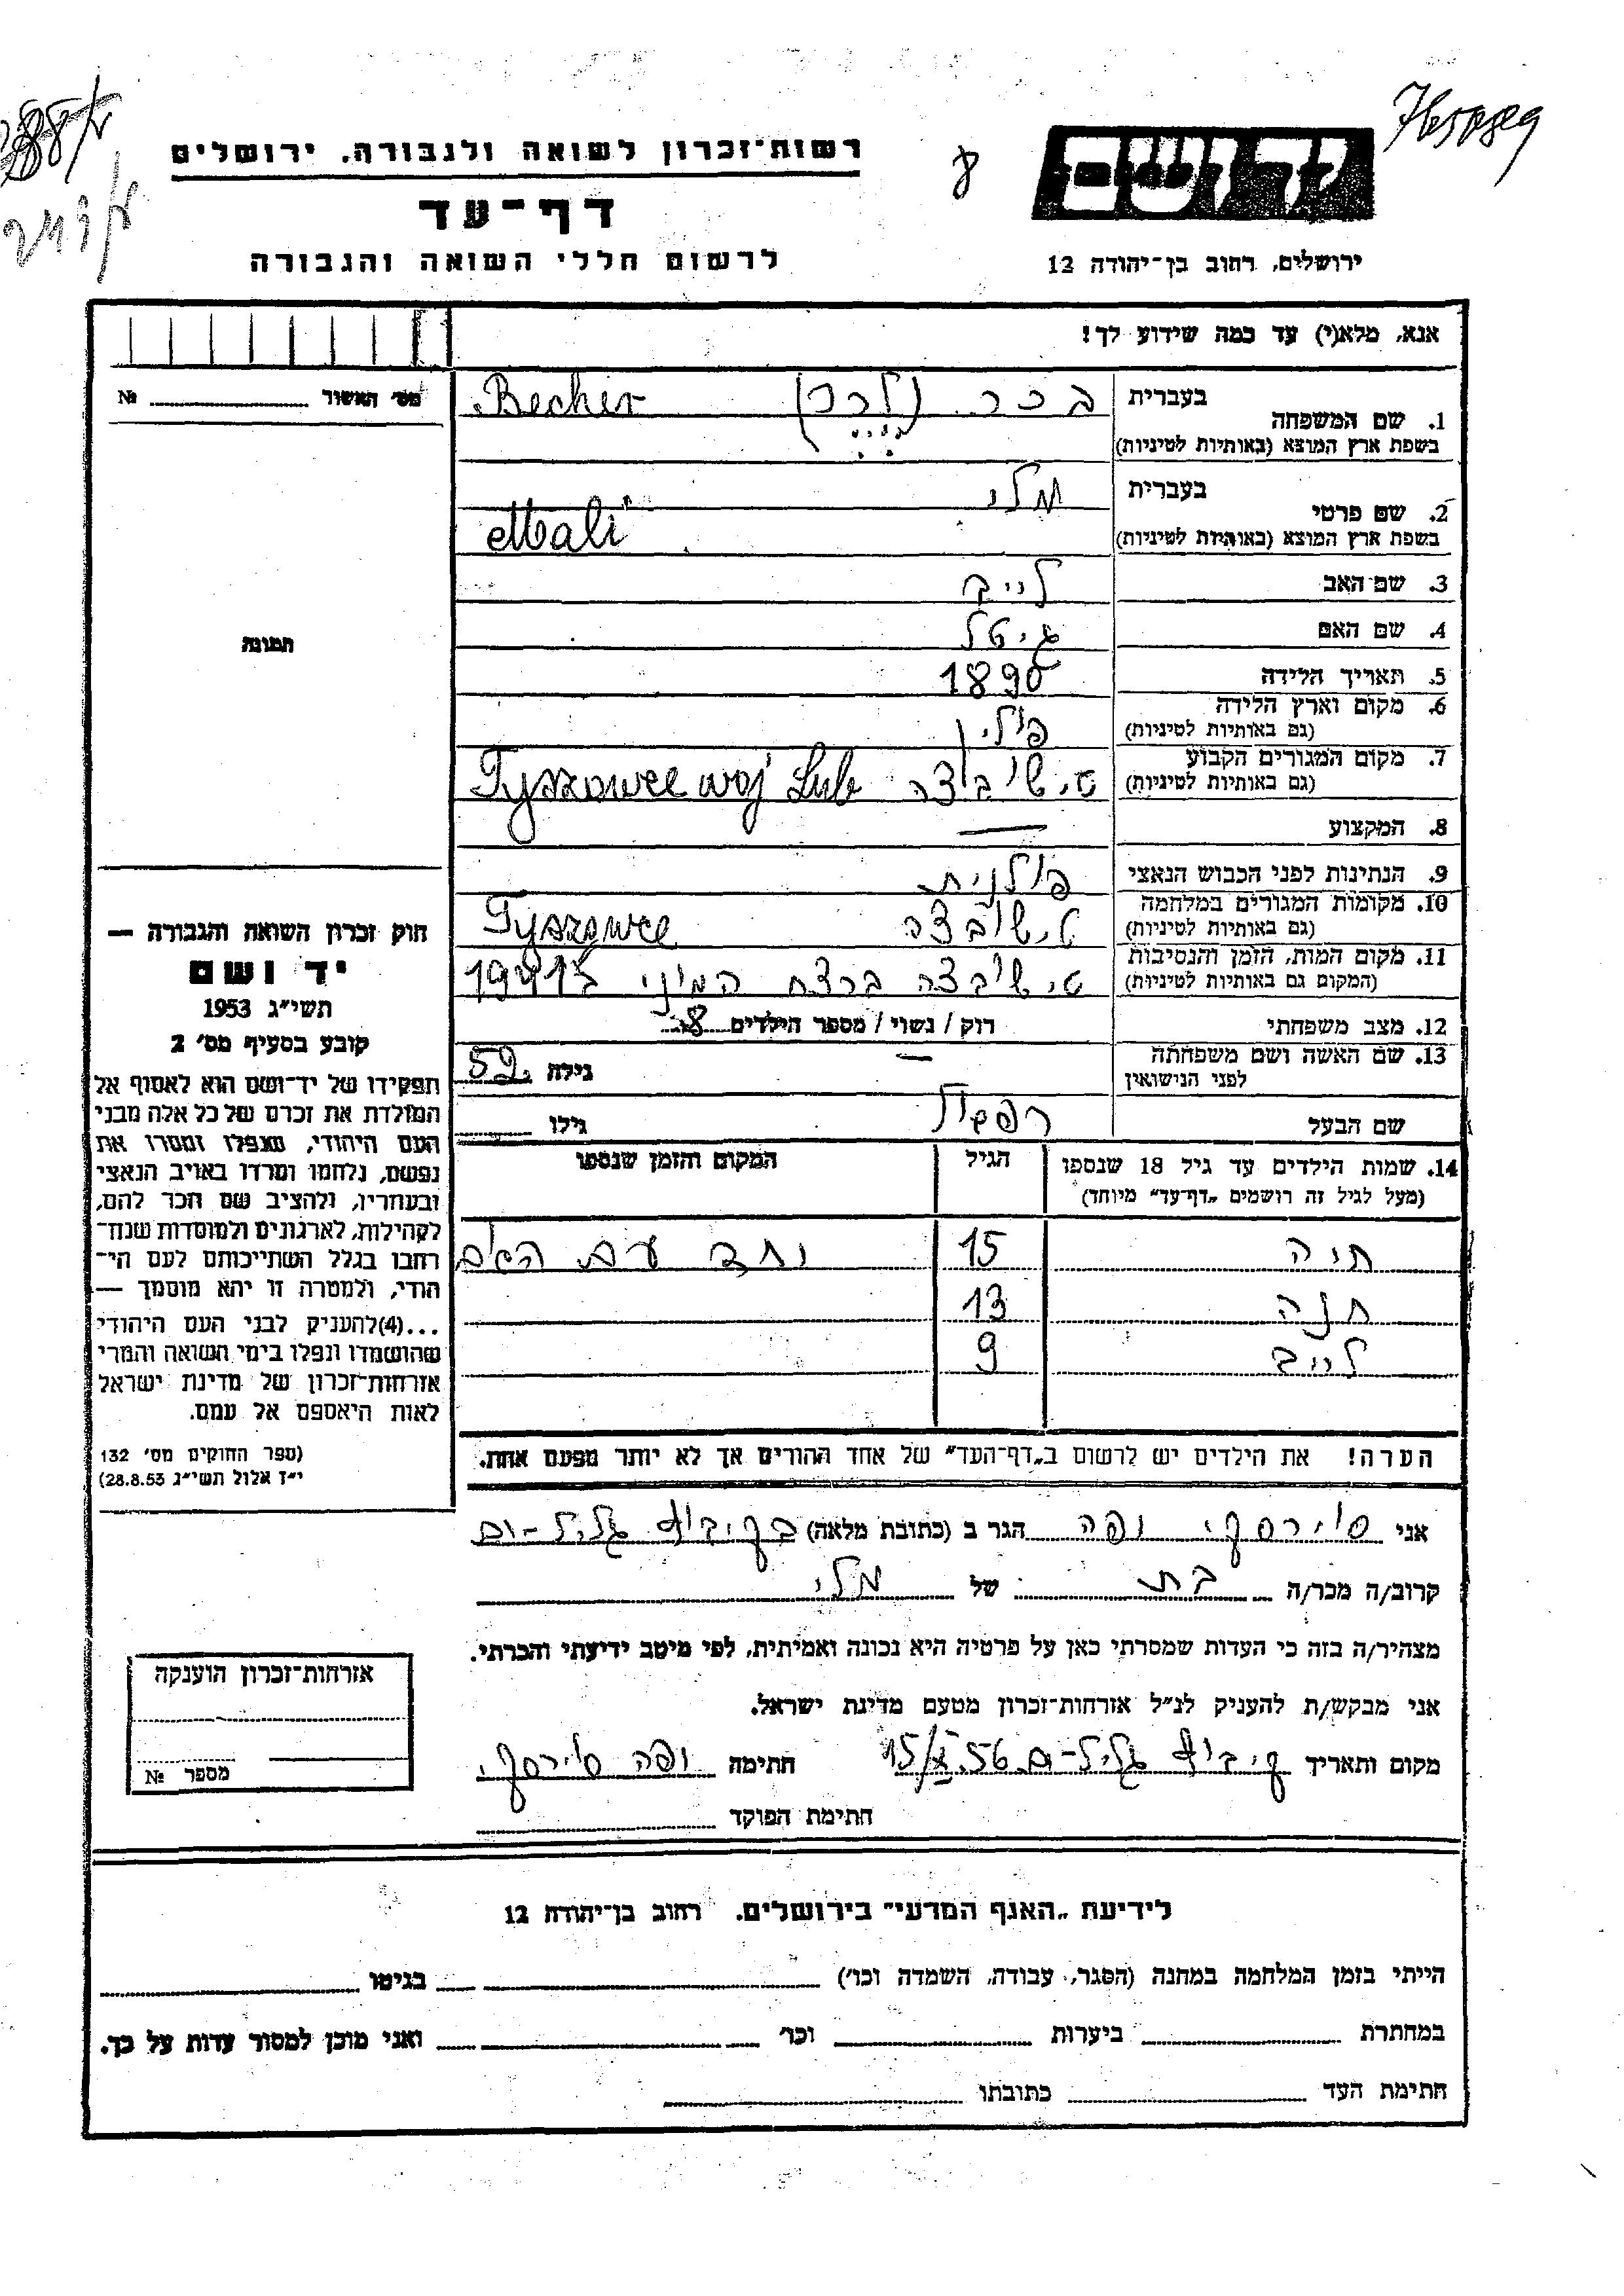 ידושם
ירושלים, רחוב בן־יהודה 12
רשות־זכרון לשואה ולגבורה, ירושלים
דף־עד
לרשום חללי השואה והגבורה
אנא, מלא(י) עד כמה שידוע לך!
1. שם המשפחה בעברית בכר
בשפת ארץ המוצא (באותיות לטיניות) Becher
2. שם פרטי בעברית מלי
בשפת ארץ המוצא (באותיות לטיניות) Mali
3. שם האב לייב
4. שם האם גיטל
5. תאריך הלידה 1890
6. מקום וארץ הלידה פולין
(גם באותיות לטיניות)
7. מקום המגורים הקבוע טישיבוצה Tyszowce woj Lub
(גם באותיות לטיניות)
8. המקצוע —
9. הנתינות לפני הכבוש הנאצי פולנית
10. מקומות המגורים במלחמה טישובצה Tyszowce
(גם באותיות לטיניות)
11. מקום המות, הזמן והנסיבות טישיבצה ברצח המוני
(המקום גם באותיות לטיניות)
12. מצב משפחתי רוק / נשוי / מספר הילדים 8
13. שם האשה ושם משפחתה — גילה 52
לפני הנישואין
שם הבעל גילו
14. שמות הילדים עד גיל 18 שנספו הגיל המקום והזמן שנספו
(מעל לגיל זה רושמים „דף־עד” מיוחד)
חיה 15 יחד עם האם
חנה 13
לייב 9
הערה! את הילדים יש לרשום ב„דף־העד” של אחד ההורים אך לא יותר מפעם אחת.
מס׳ האשור №
תמונה
חוק זכרון השואה והגבורה —
יד ושם
תשי״ג 1953
קובע בסעיף מס׳ 2
תפקידו של יד־ושם הוא לאסוף אל
המולדת את זכרם של כל אלה מבני
העם היהודי, שנפלו ומסרו את
נפשם, נלחמו ומרדו באויב הנאצי
ובעוזריו, ולהציב שם וזכר להם,
לקהילות, לארגונים ולמוסדות שנח־
רחבו בגלל השתייכותם לעם הי־
הודי, ולמטרה זו יהא מוסמך —
...(4)להעניק לבני העם היהודי
שהושמדו ונפלו בימי השואה והמרי
אזרחות־זכרון של מדינת ישראל
לאות היאספם אל עמם.
(ספר החוקים מס׳ 132
י״ז אלול תשי״ג 28.8.53)
אני יפה הגר ב (כתובת מלאה) בקיבוץ גליל־ים
קרוב/ה מכר/ה בת של מלי
מצהיר/ה בזה כי העדות שמסרתי כאן על פרטיה היא נכונה ואמיתית, לפי מיטב ידיעתי והכרתי.
אני מבקש/ת להעניק לנ״ל אזרחות־זכרון מטעם מדינת ישראל.
מקום ותאריך קיבוץ גליל־ים 15/X.56 חתימה יפה
חתימת הפוקד
אזרחות־זכרון הוענקה
מספר №
לידיעת „האגף המדעי” בירושלים. רחוב בן־יהודה 12
הייתי בזמן המלחמה במחנה (הסגר, עבודה, השמדה וכו׳) בגיטו
במחתרת ביערות וכו׳ ואני מוכן למסור עדות על כך.
חתימת העד כתובתו